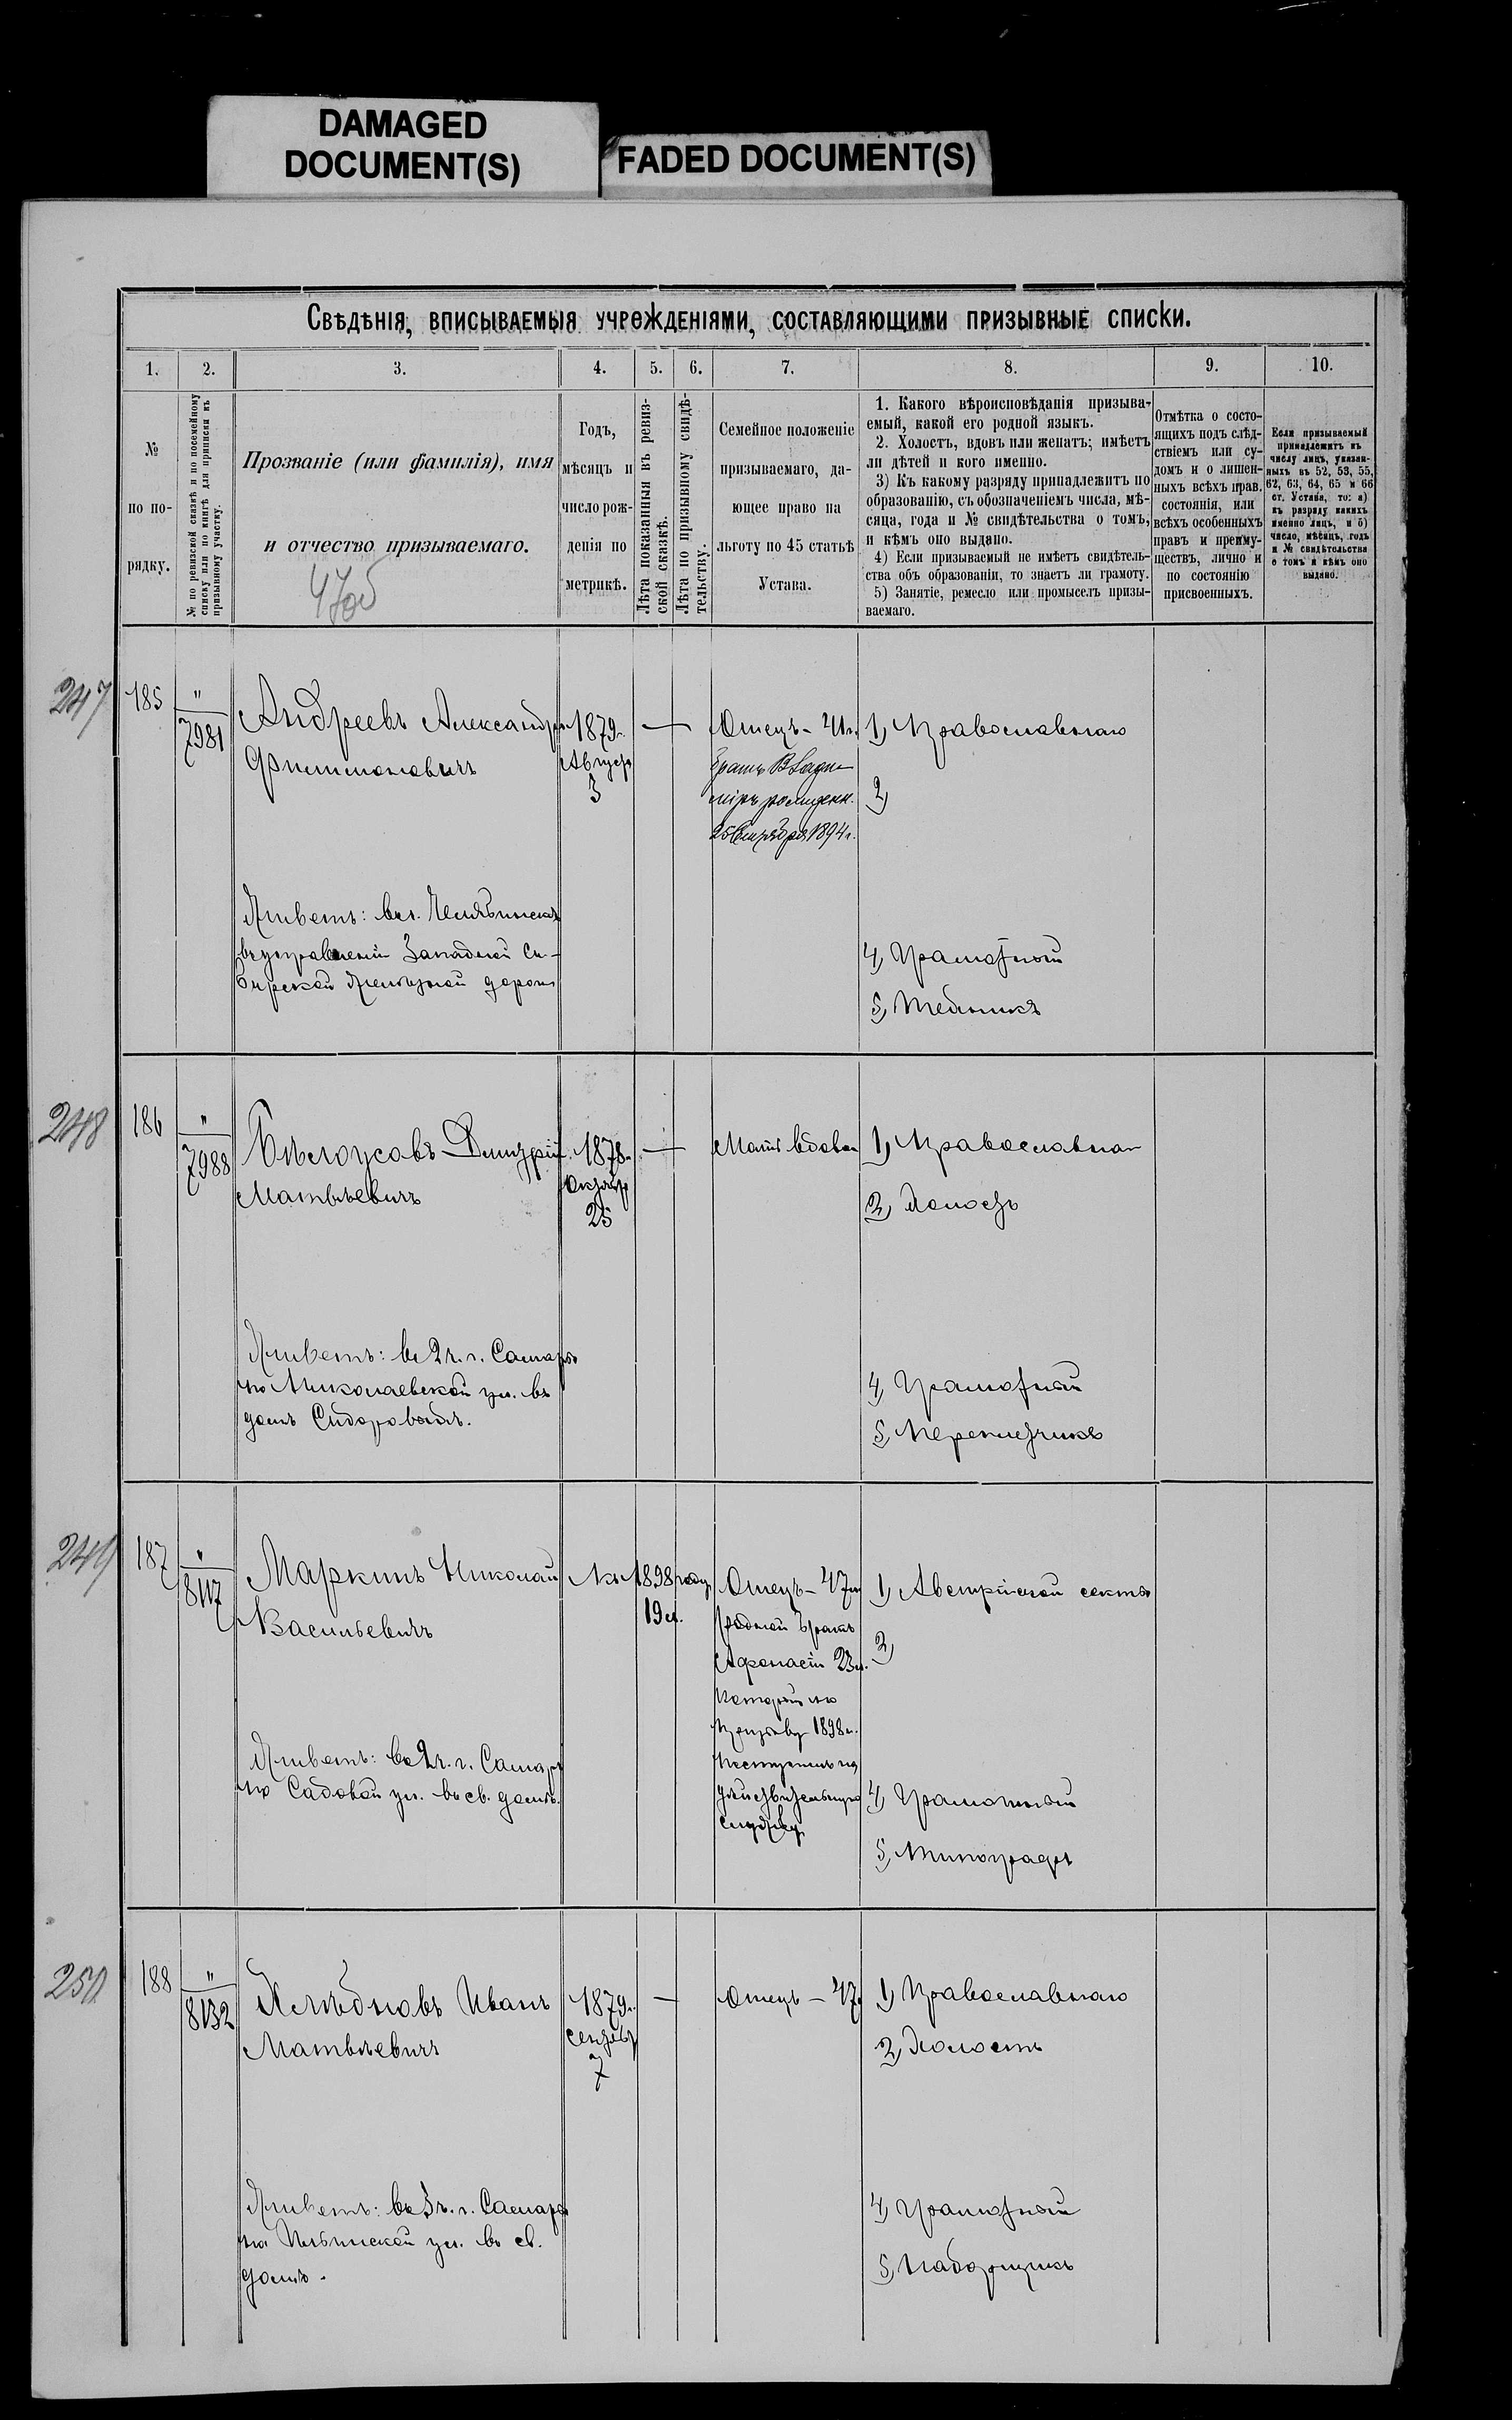 DAMAGED
DOCUMENT(S)
FADED DOCUMENT(S)
Свѣдѣнія, вписываемыя учрежденіями, составляющими призывные списки.
1. 2. 3. 4. 5. 6. 7. 8. 9. 10.
№
по по-
рядку.
№ по ревизской сказкѣ и по посемейному
списку или по книгѣ для приписки къ
призывному участку.
Прозваніе (или фамилія), имя
и отчество призываемаго.
Годъ,
мѣсяцъ и
число рож-
денія по
метрикѣ.
Лѣта показанныя въ ревиз-
ской сказкѣ.
Лѣта по призывному свидѣ-
тельству.
Семейное положеніе
призываемаго, да-
ющее право на
льготу по 45 статьѣ
Устава.
1. Какого вѣроисповѣданія призыва-
емый, какой его родной языкъ.
2. Холостъ, вдовъ или женатъ; имѣетъ
ли дѣтей и кого именно.
3) Къ какому разряду принадлежитъ по
образованію, съ обозначеніемъ числа, мѣ-
сяца, года и № свидѣтельства о томъ,
и кѣмъ оно выдано.
4) Если призываемый не имѣетъ свидѣтель-
ства объ образованіи, то знаетъ ли грамоту.
5) Занятіе, ремесло или промыселъ призы-
ваемаго.
Отмѣтка о состо-
ящихъ подъ слѣд-
ствіемъ или су-
домъ и о лишен-
ныхъ всѣхъ прав.
состоянія, или
всѣхъ особенныхъ
правъ и преиму-
ществъ, лично и
по состоянію
присвоенныхъ.
Если призываемый
принадлежитъ къ
числу лицъ, указан-
ныхъ въ 52, 53, 55,
62, 63, 64, 65 и 66
ст. Устава, то: а)
къ разряду какихъ
именно лицъ, и б)
число, мѣсяцъ, годъ
и № свидѣтельства
о томъ и кѣмъ оно
выдано.
247
185
"
7981
Андреевъ Александръ
Филимоновичъ
Живетъ: въ г. Челябинскѣ
въ управленіи Западной Си-
бирской желѣзной дороги
1879 г.
Август
3
—
Отецъ - 41 г.
братъ Влади-
міръ рожден.
25 Сентября 1894 г.
1) Православнаго
2)
4) Грамотный
5)
248
186
"
7988
Бѣлоусовъ Димитрій
Матвѣевичъ
Живетъ: въ 2 ч. г. Самары
по Николаевской ул. въ
домѣ Сидоровыхъ.
1878 г.
Октябр
25
—
Мать вдова
1) Православна
2) Холостъ
4) Грамотный
5) Переплетчикъ
249
187
"
8117
Маркинъ Николай
Васильевичъ
Живетъ: въ 2 ч. г. Самары
по Садовой ул. въ св. домѣ.
Къ 1898 году
19 л.
Отецъ - 47 л
родной братъ
Афонасій 23 л.
который по
призыву 1898 г.
поступилъ на
дѣйствительную
службу
1) Австрійской секты
2)
4) Грамотный
5) Типографъ
250
188
"
8132
Хлѣбновъ Иванъ
Матвѣевичъ
Живетъ: въ 3 ч. г. Самары
на Ильинской ул. въ св.
домѣ.
1879 г.
Сентябр
7
—
Отецъ - 47
1) Православнаго
2) Холостъ
4) Грамотный
5) Наборщикъ